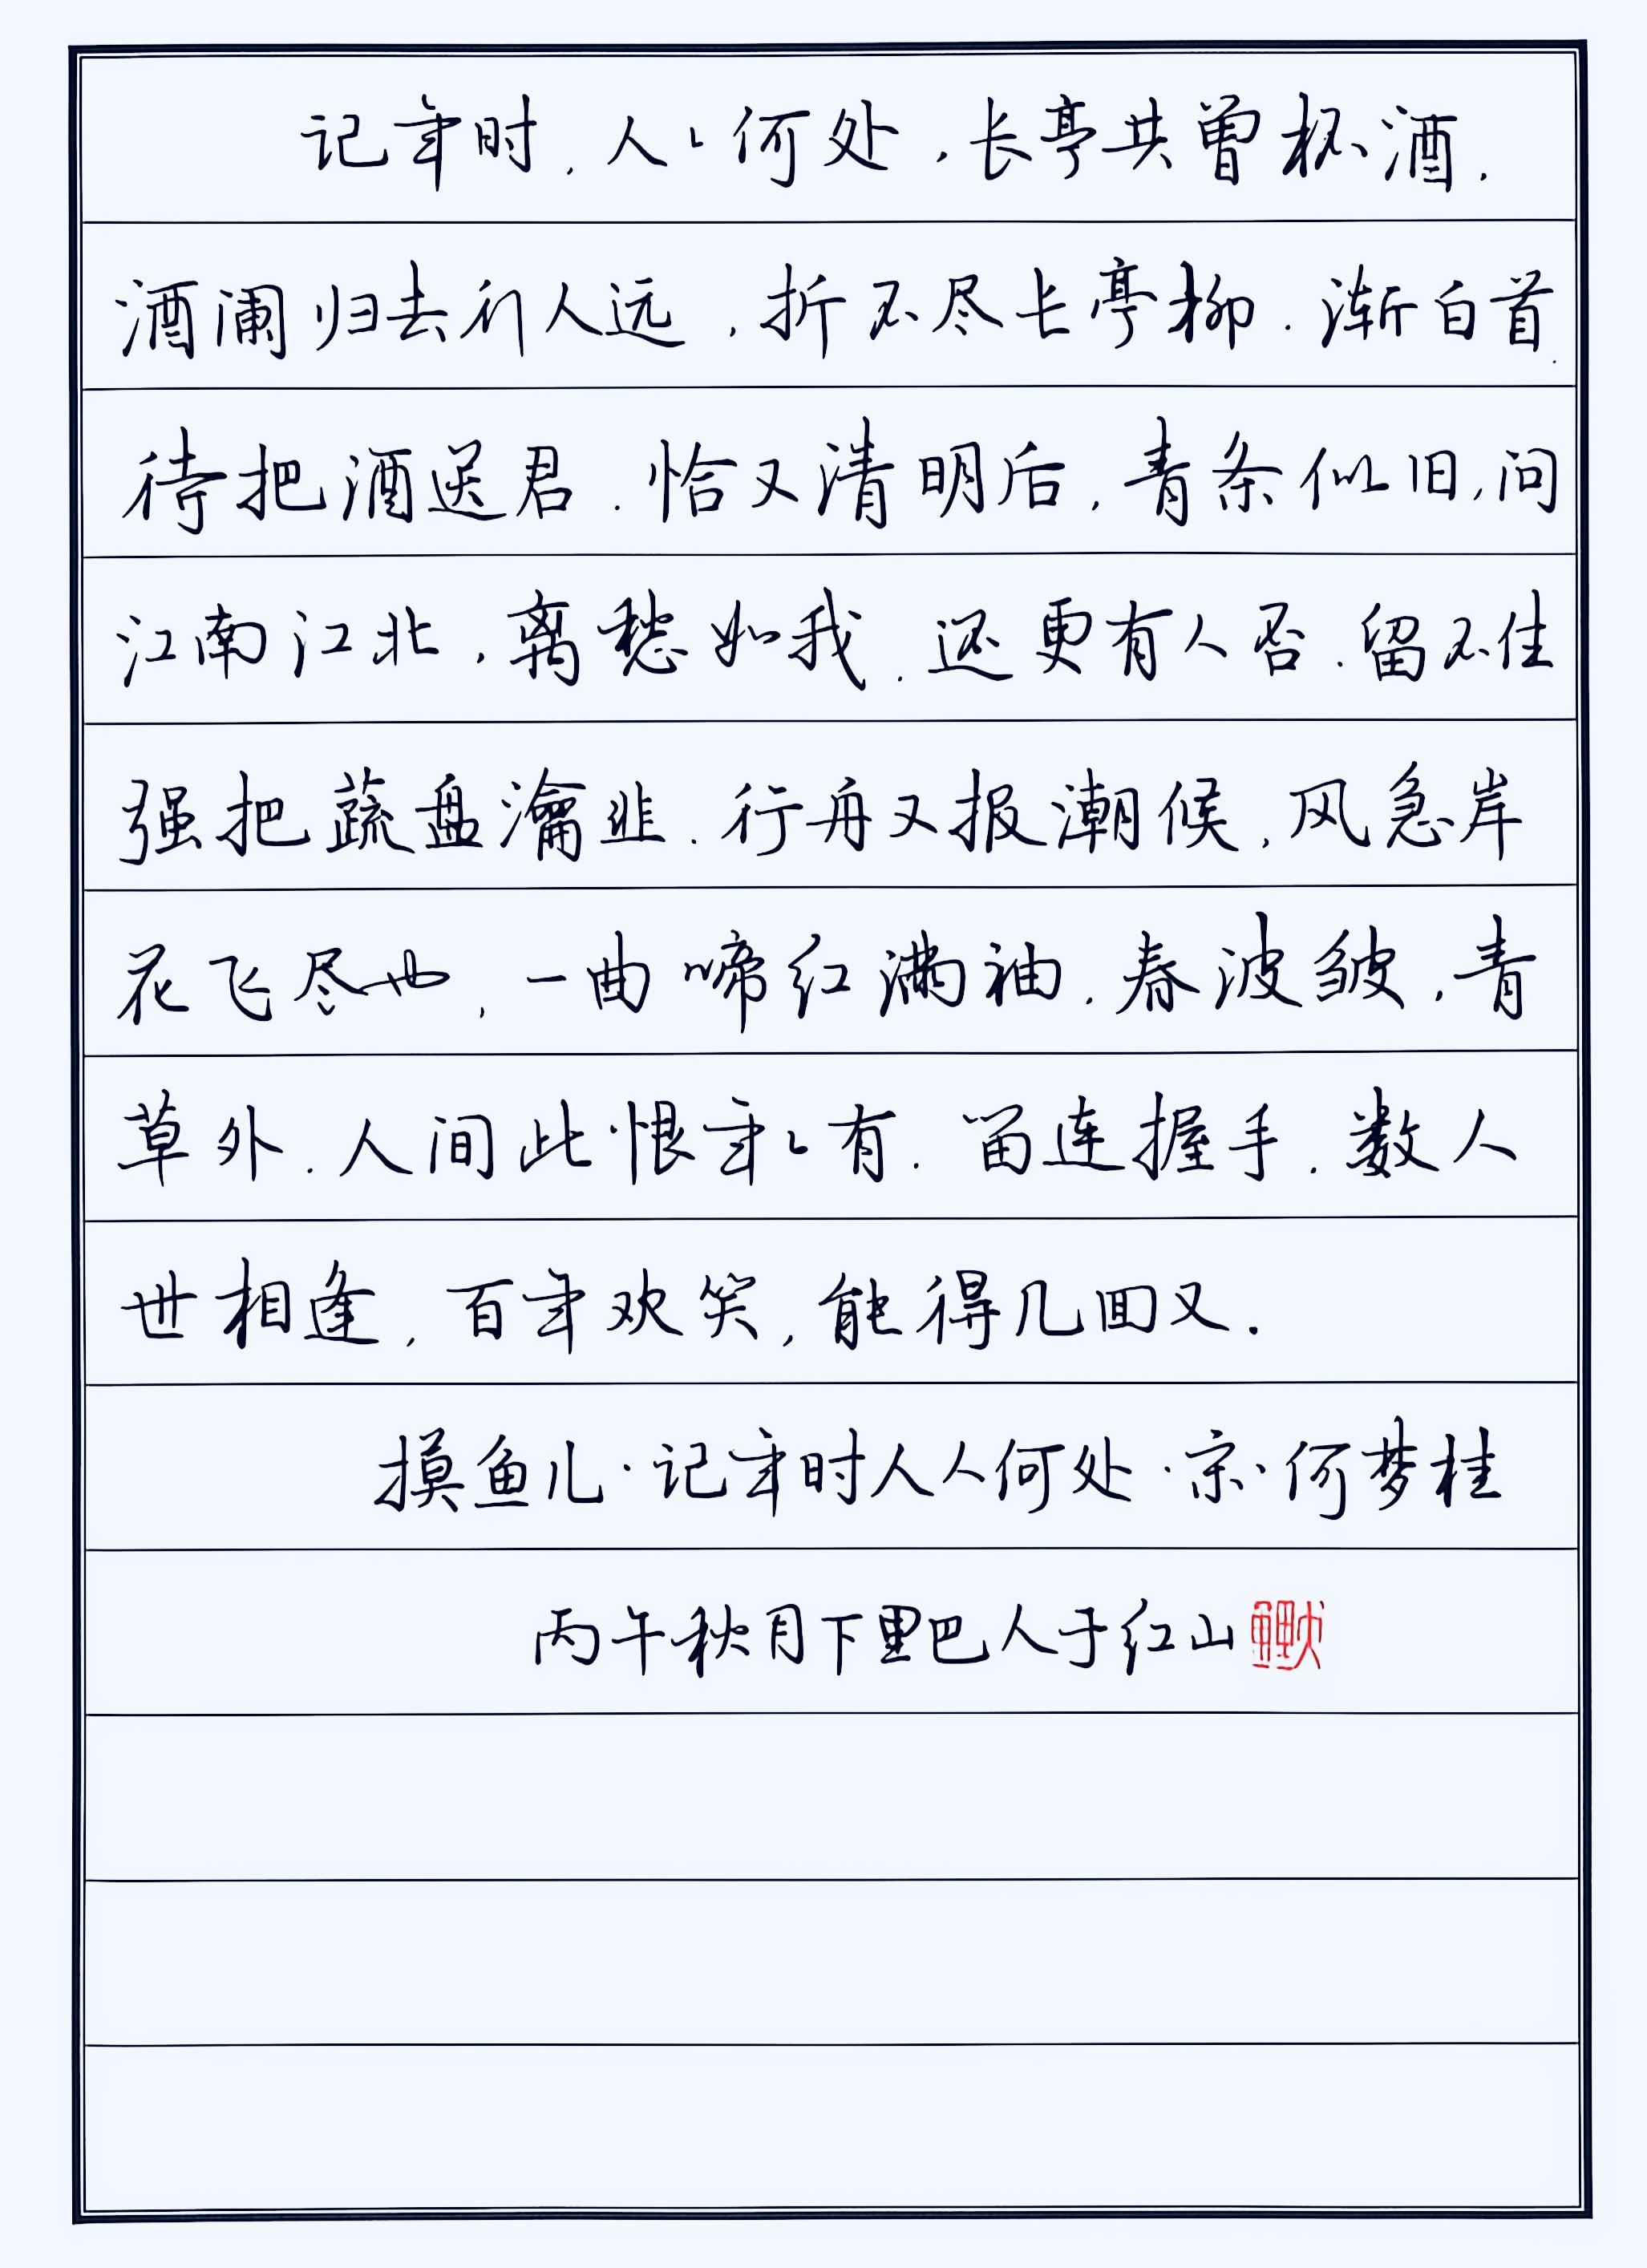 记年时,人々何处,长亭共曾杯酒.
酒阑归去行人远,折不尽长亭柳.渐白首.
待把酒送君.恰又清明后,青条似旧,问
江南江北,离愁如我.还更有人否.留不住
强把蔬盘瀹韭.行舟又报潮候,风急岸
花飞尽也,一曲啼红满袖.春波皱,青
草外.人间此恨年々有.留连握手.数人
世相逢,百年欢笑,能得几回又.
摸鱼儿·记年时人人何处·宋·何梦桂
丙午秋月下里巴人于红山